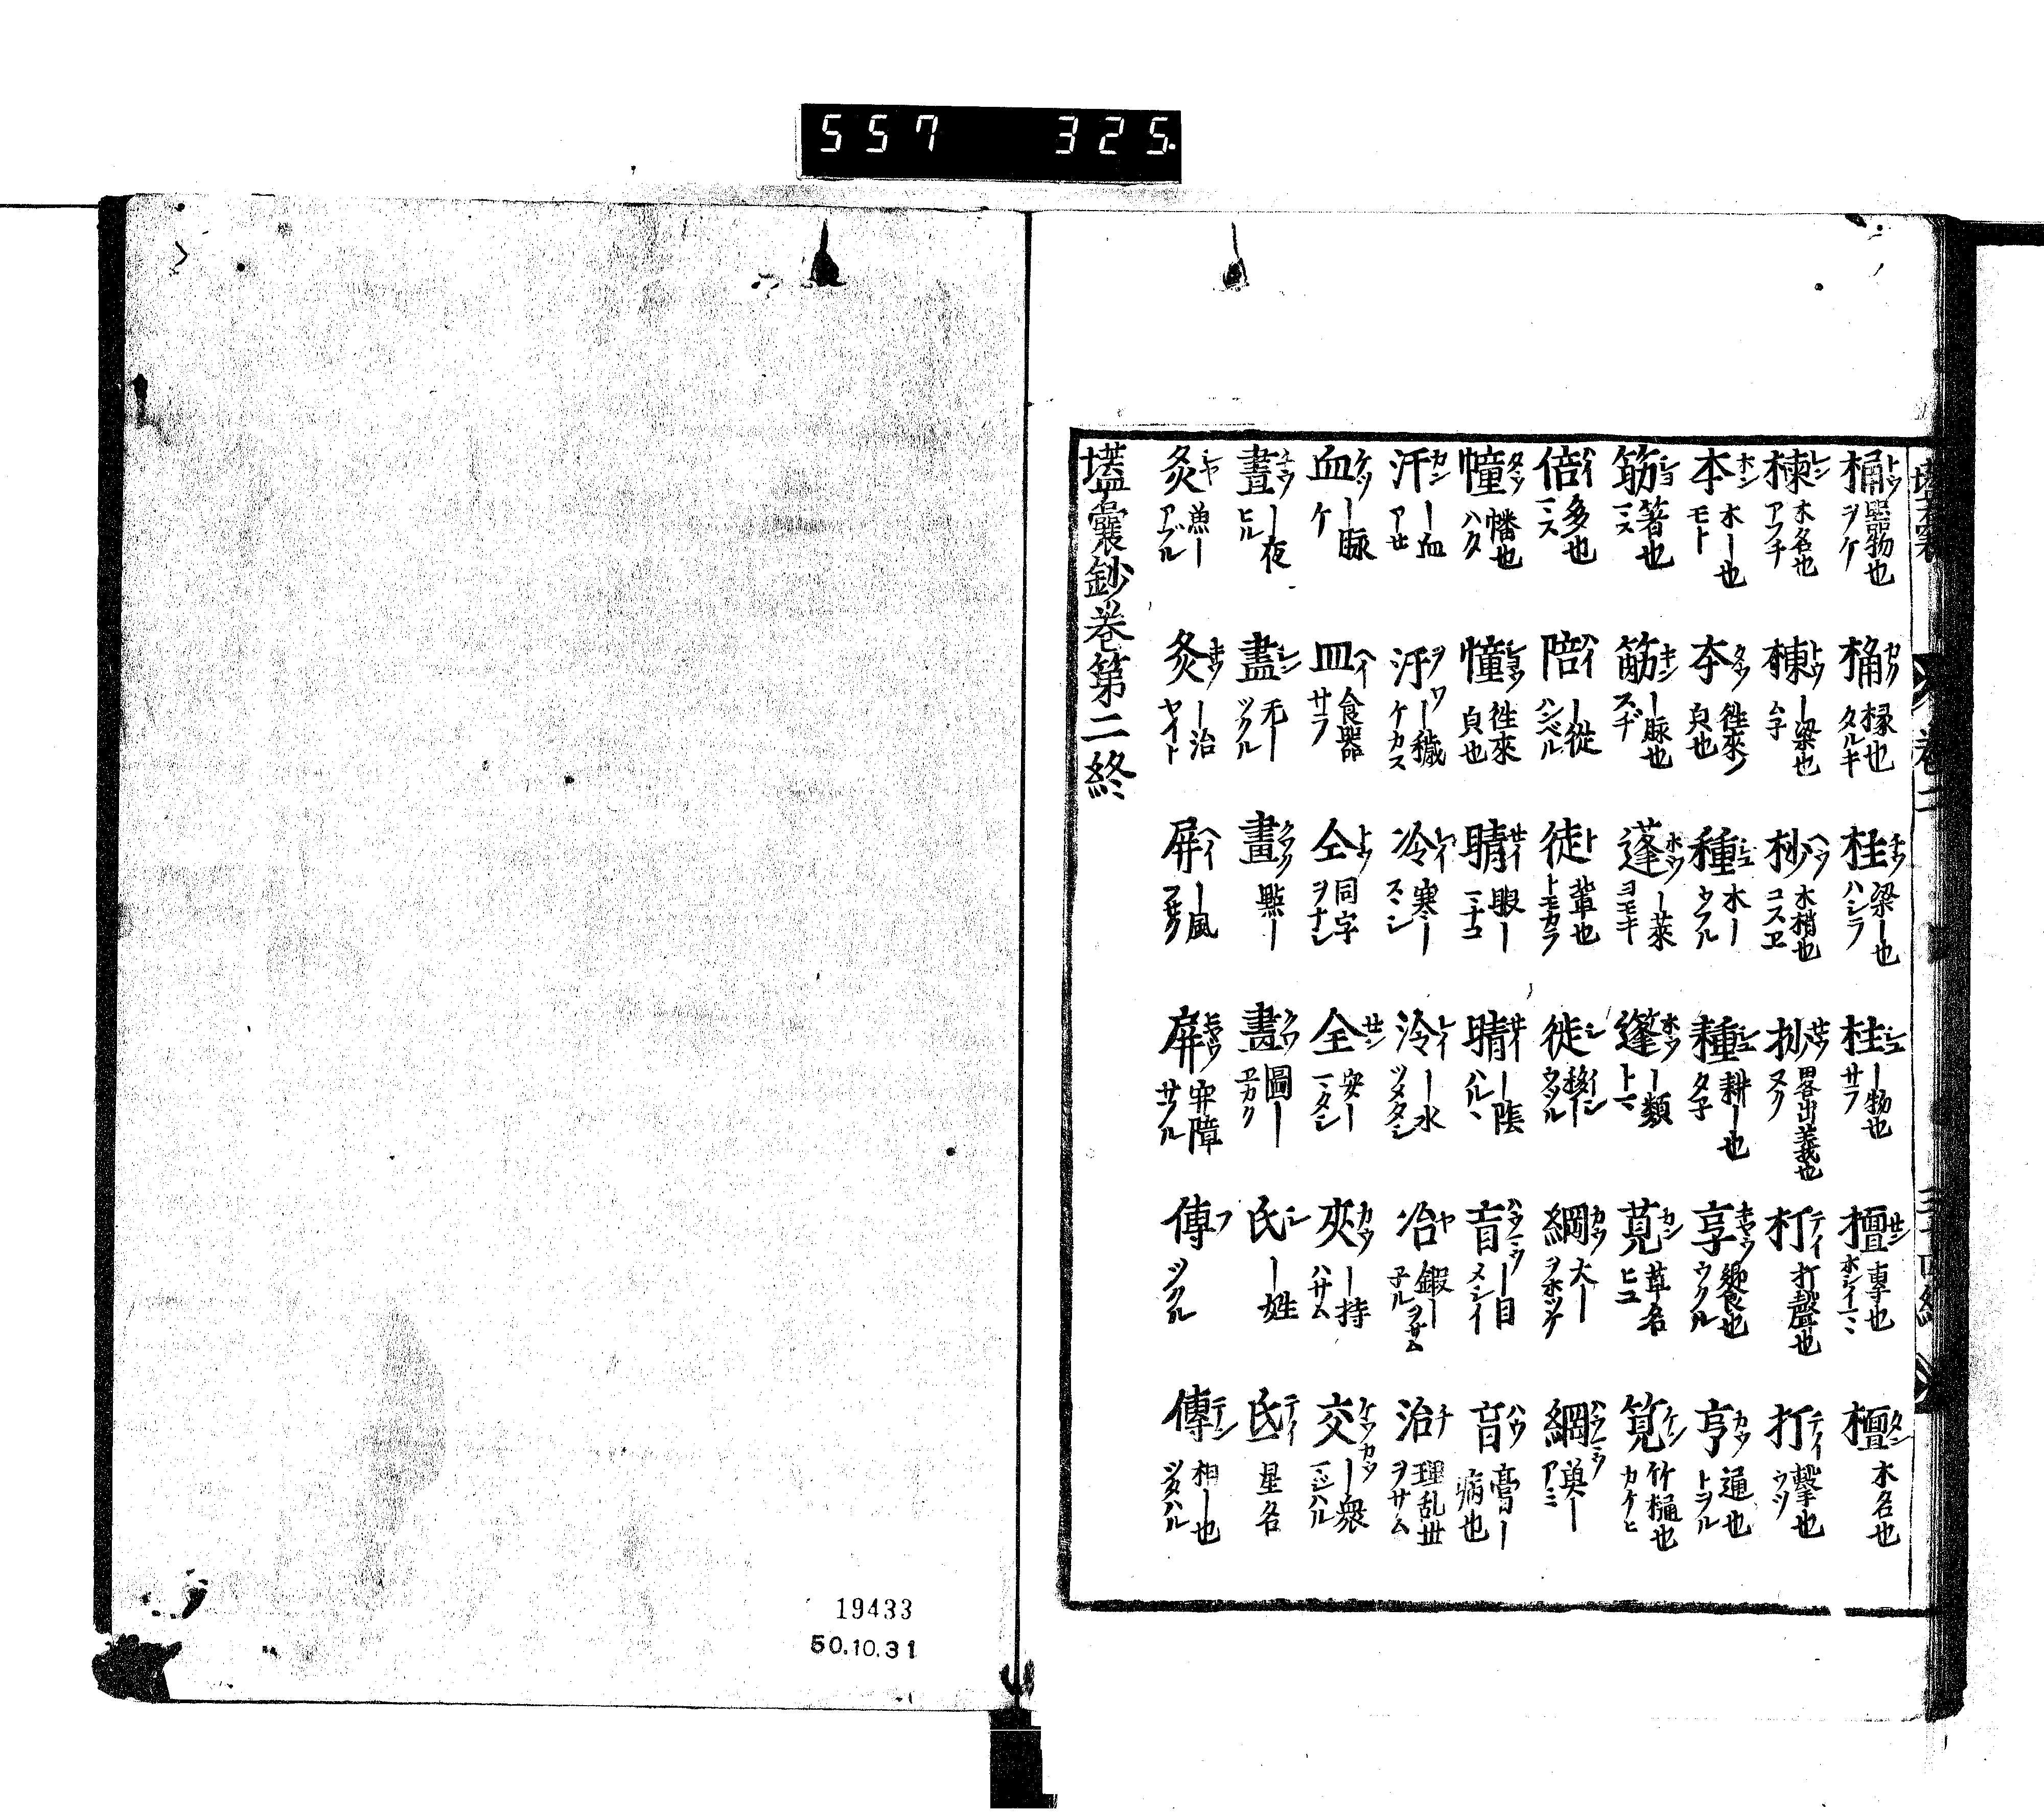 557 325.
桶 トウ 器物也 ヲケ 桷 カク 椽也 タルキ 柱 チウ 梁ー也 ハシラ 拄 シユ ー物也 サフ 擅 セン 專也 ホシイマヽ 檀 タン 木名也
楝 レン 木名也 アフチ 棟 トウ ー梁也 ムネ 杪 ヘウ 木梢也 コスヱ 抄 セウ 畧出義也 ヌク 朾 テイ 打聲也 打 テイ 撃也 ウツ
本 ホン 木ー也 モト 夲 タウ 徃來ノ 皃也 種 シユ 木ー ウフル 種 シユ 耕ー也 タ子 享 キヤウ 饗食也 ウクル 亨 カウ 通也 トヲル
筋 箸也 筋 キン ー脉也 スヂ 蓬 ホウ ー萊 ヨモキ 篷 ホウ ー類 トマ 莧 カン 草名 ヒユ 筧 ケン 竹樋也 カケヒ
倍 ハイ 多也 マス 陪 ハイ ー從 ハンベル 徒 ト 輩也 トモカラ 徙 シ 移ー ウツル 綱 カウ 大ー ヲホツナ 網 ハウ アミ
幢 タウ 幡也 ハタ 憧 シヨウ 徃來 皃也 睛 セイ 眼ー マナコ 晴 セイ ー陰 ハルヽ 盲 ー目 メシイ 肓 ハウ 膏ー 病也
汗 カン ー血 アセ 汚 ヲ ー穢 ケカス 冷 レイ 寒ー スヽシ 泠 レイ ー水 ツメタシ 冶 ヤ 鍜ー 治 チ 理乱世 ヲサム
血 ケツ ー脉 皿 ヘイ 食器 サラ 仝 トウ 同字 ヲナシ 全 セン 安ー マタシ 夾 カウ ー持 ハサム 交 ケウカウ ー衆 マシハル
晝 チウ ー夜 ヒル 盡 シン 无ー ツクル 畫 クワク 點ー 畫 クワ 圖ー ヱカク 氏 シ ー姓 氐 テイ 星名
炙 シヤ 漁ー アブル 灸 キウ ー治 ヤイト 屏 ヘイ ー風 屏 牢障 サフル 傅 フ ツクル 傳 テン 相ー也 ツタハル
壒囊鈔巻第二終
19433
50.10.31